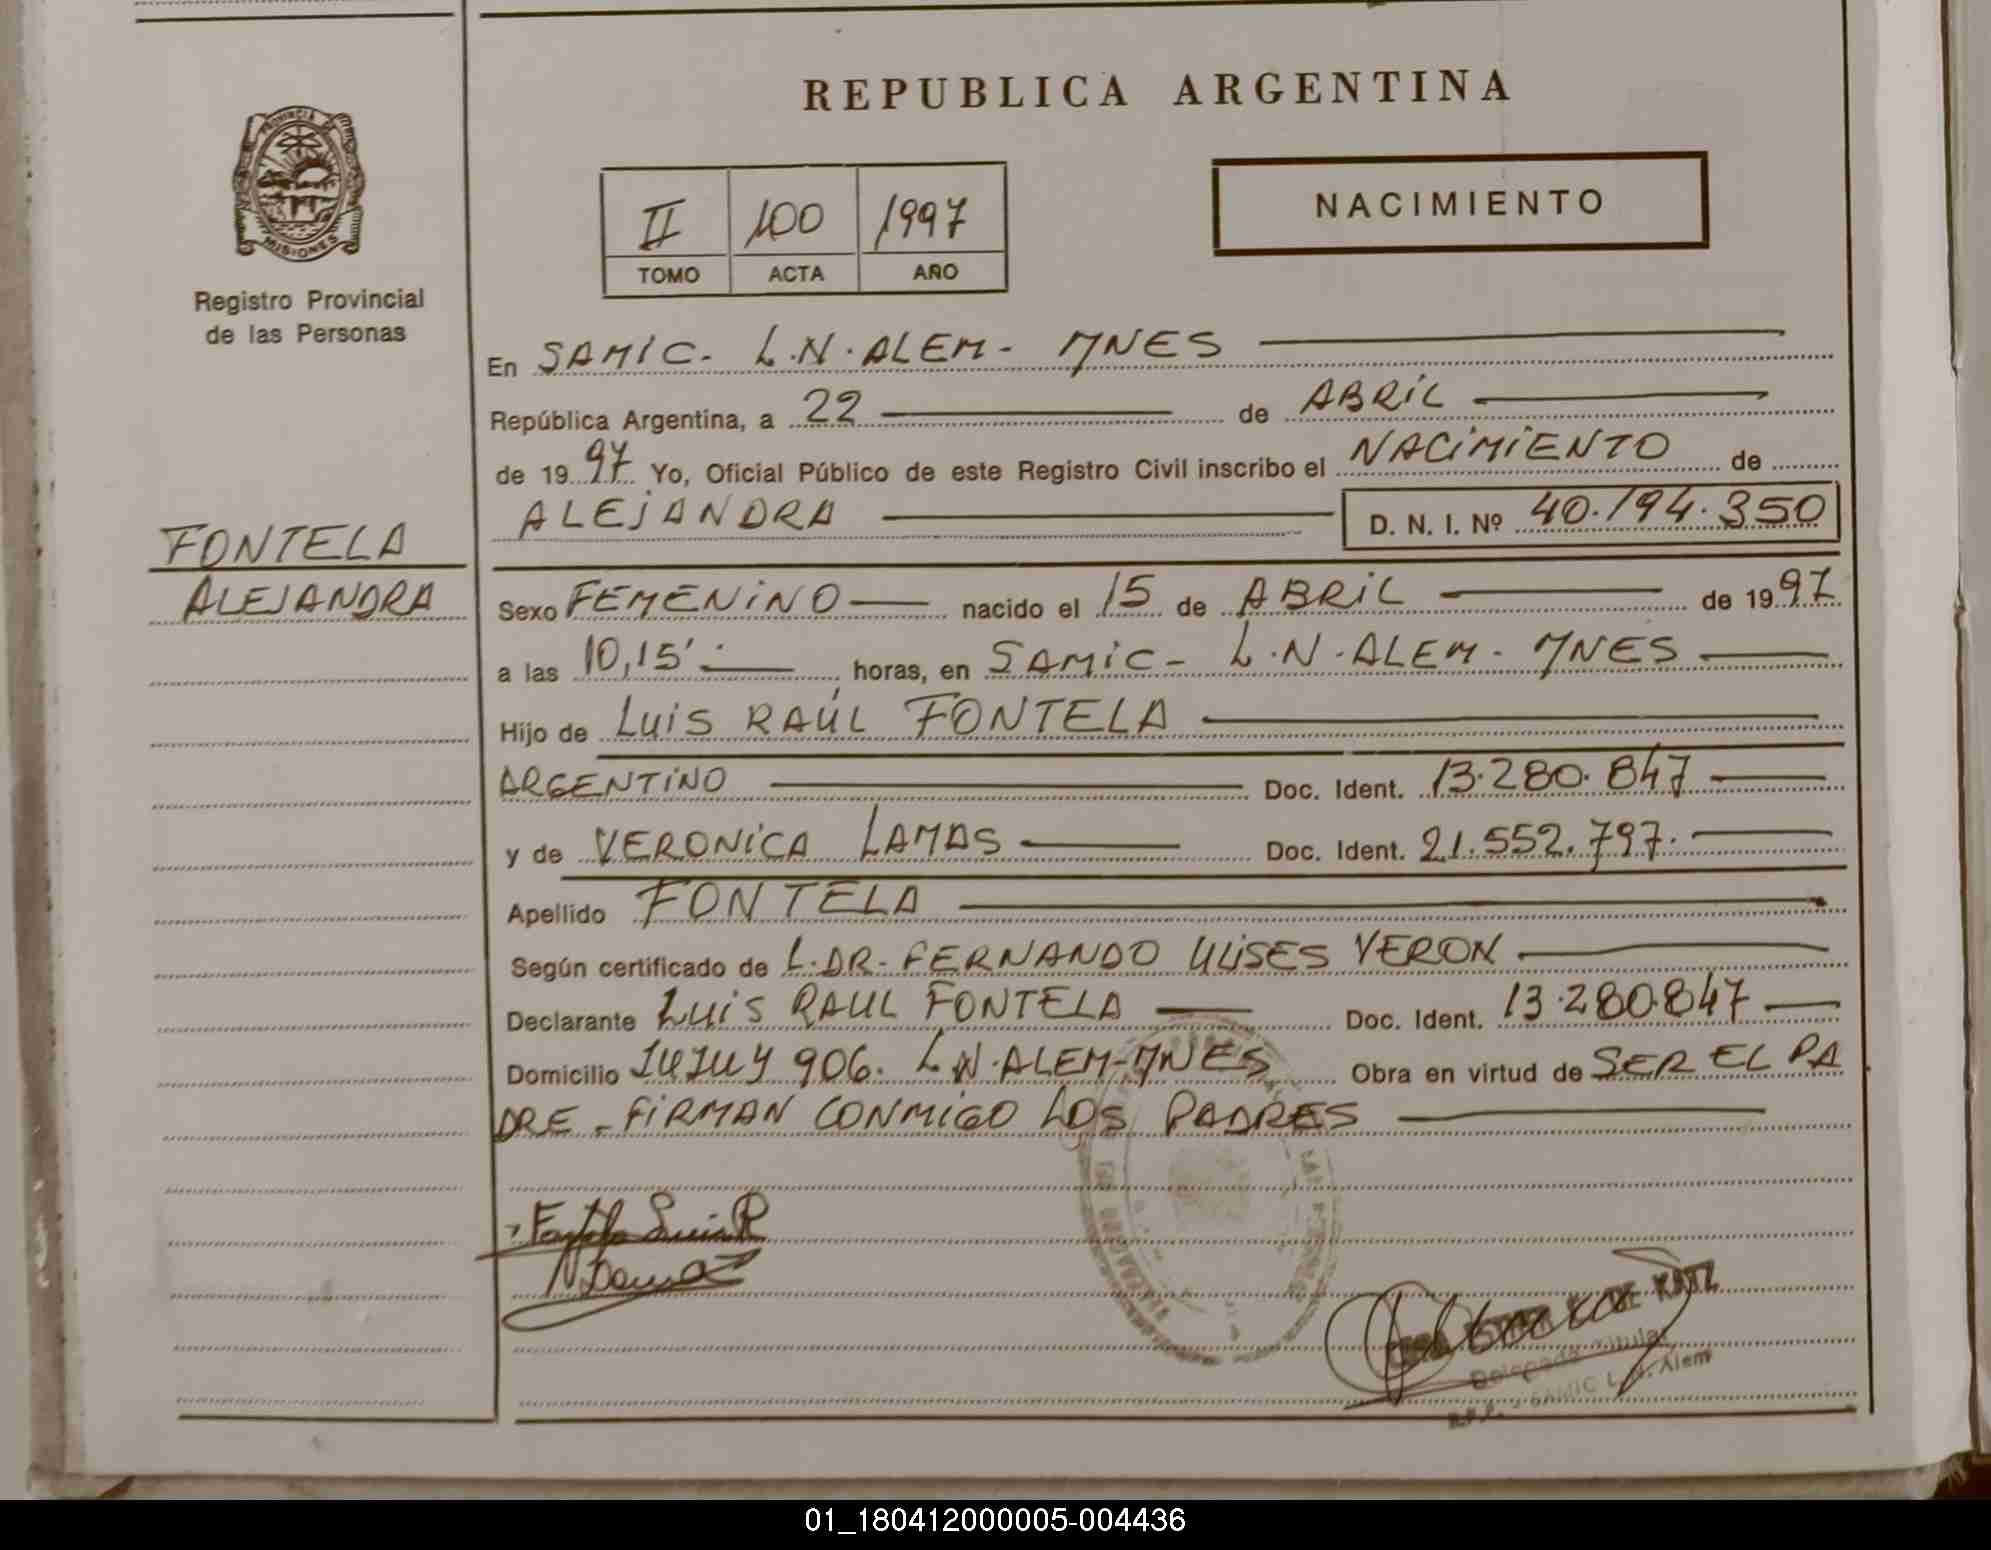 REPUBLICA ARGENTINA
PROVINCIA DE
MISIONES
Registro Provincial
de las Personas
II 100 1997
TOMO ACTA AÑO
NACIMIENTO
En SAMIC- L.N.ALEM- MNES
República Argentina, a 22 de ABRIL
de 1997 Yo, Oficial Público de este Registro Civil inscribo el NACIMIENTO de
ALEJANDRA D. N. I. Nº 40.194.350
FONTELA
ALEJANDRA
Sexo FEMENINO nacido el 15 de ABRIL de 1997
a las 10,15' horas, en SAMIC- L.N.ALEM- MNES
Hijo de LUIS RAÚL FONTELA
ARGENTINO Doc. Ident. 13.280.847
y de VERONICA LAMAS Doc. Ident. 21.552.797.
Apellido FONTELA
Según certificado de L.DR- FERNANDO ULISES VERON
Declarante LUIS RAUL FONTELA Doc. Ident. 13.280.847
Domicilio JUJUY 906. L.N.ALEM-MNES Obra en virtud de SER EL PA
DRE - FIRMAN CONMIGO LOS PADRES
Luis R
DE KATZ
Delegada Titular
SAMIC L. N. Alem
01_180412000005-004436